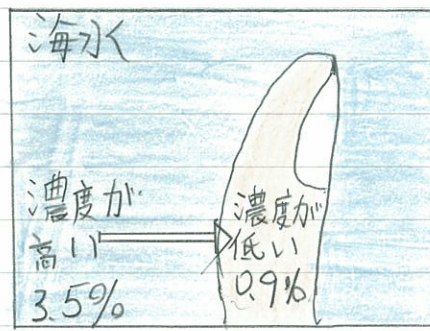 海水
濃度が
高い
3.5%
濃度が
低い
0.9%